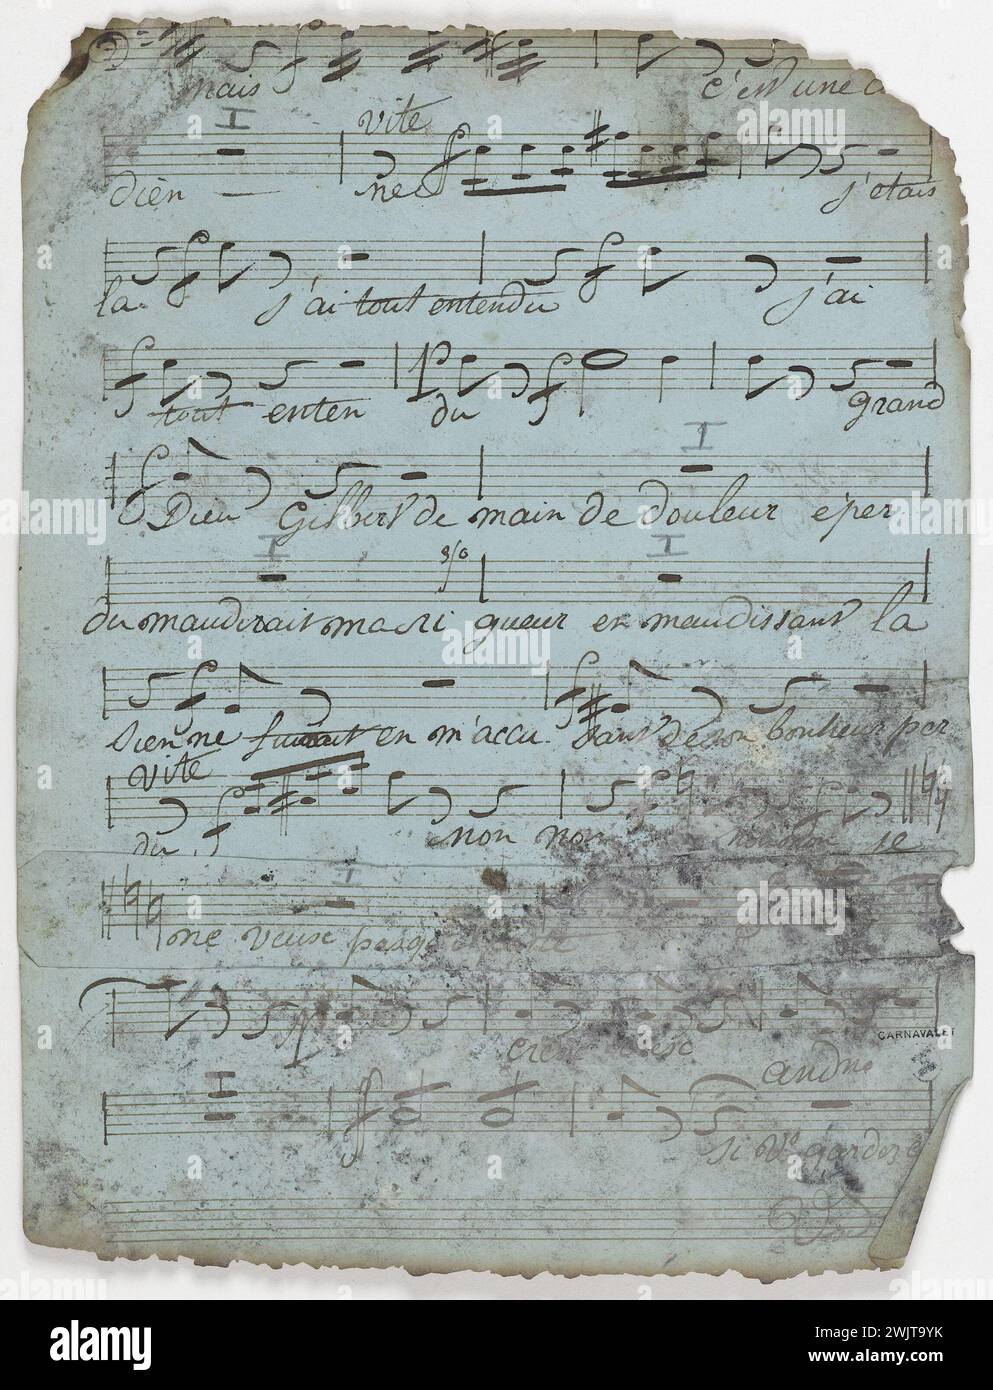 mais c'est une
vite
dièn ne j'etais
la j'ai tout entendu j'ai
tout enten du grand
Dieu Gilbert de main de douleur éper
du maudirait ma ri gueur en maudissant la
sienne en m'accu sant de son bonheur per
vite
du non non non non se
ne veuse
andno
si Ve gardez
CARNAVALET
alamy
Image ID: 2WJT9YK
www.alamy.com